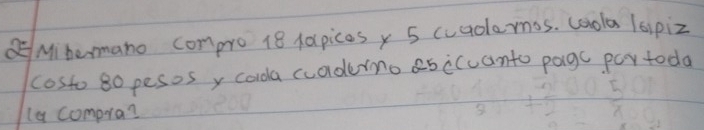 2= Mi hermano compro 18 lapices y 5 cuadernos. Cada lapiz
costo 80 pesos y cada cuaderno 25 ¿cuanto pago por toda
la compra?